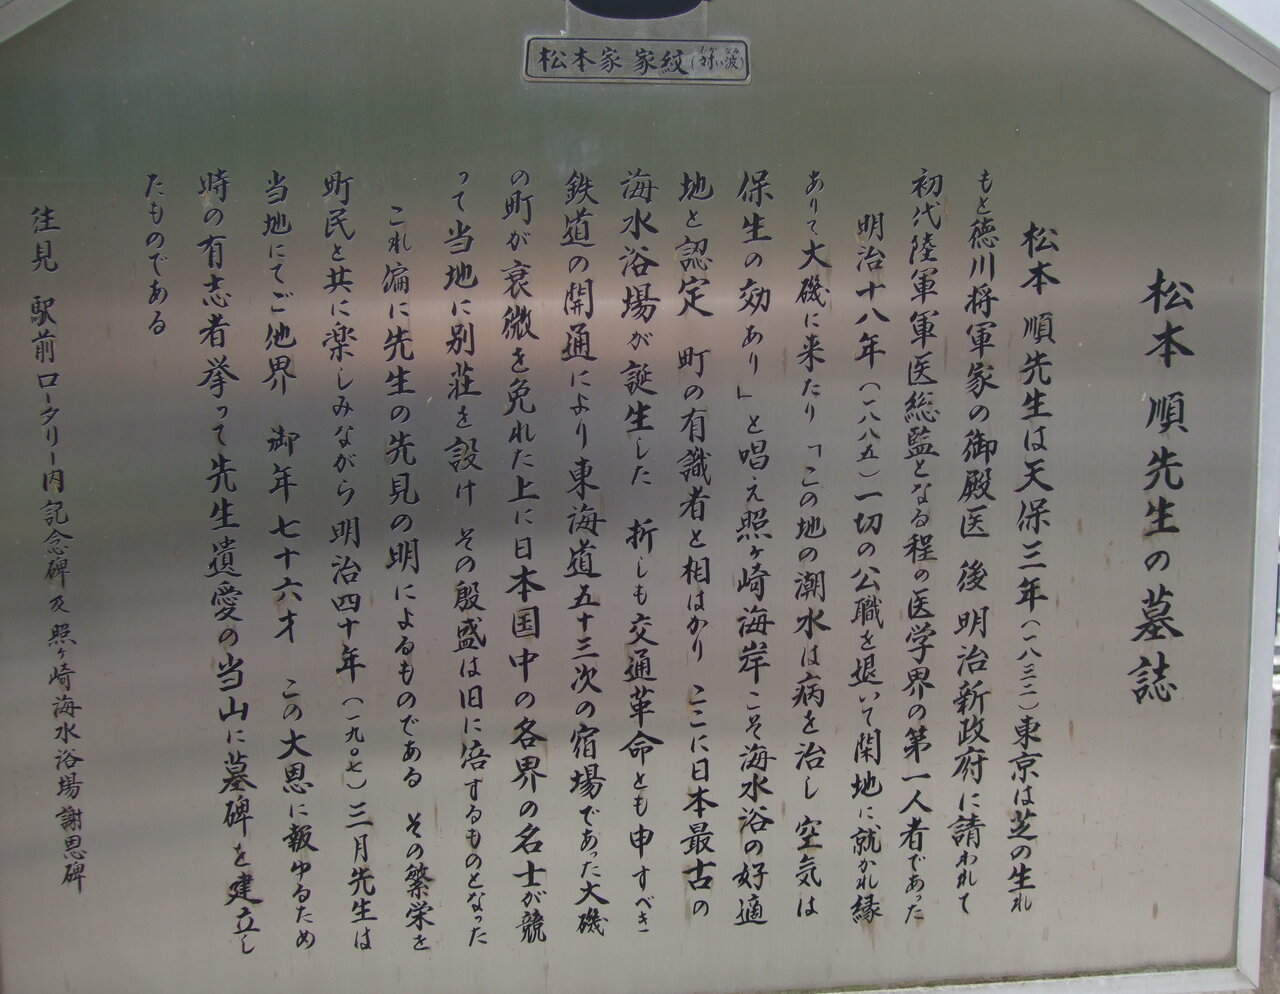 松本家 家紋(対い波)
松本 順先生の墓誌
松本 順先生は天保三年(一八三二)東京は芝の生れ
もと徳川将軍家の御殿医 後 明治新政府に請われて
初代陸軍軍医総監となる程の医学界の第一人者であった
明治十八年(一八八五)一切の公職を退いて閑地に就かれ縁
ありて大磯に来たり「この地の潮水は病を治し 空気は
保生の効あり」と唱え照ヶ崎海岸こそ海水浴の好適
地と認定 町の有識者と相はかり ここに日本最古の
海水浴場が誕生した 折しも交通革命とも申すべき
鉄道の開通により東海道五十三次の宿場であった大磯
の町が衰微を免れた上に日本国中の各界の名士が競
って当地に別荘を設け その殷盛は旧に倍するものとなった
これ偏に先生の先見の明によるものである その繁栄を
町民と共に楽しみながら明治四十年(一九〇七)三月先生は
当地にてご他界 御年七十六才 この大恩に報ゆるため
時の有志者挙って先生遺愛の当山に墓碑を建立し
たものである
往見 駅前ロータリー内記念碑及 照ヶ崎海水浴場謝恩碑